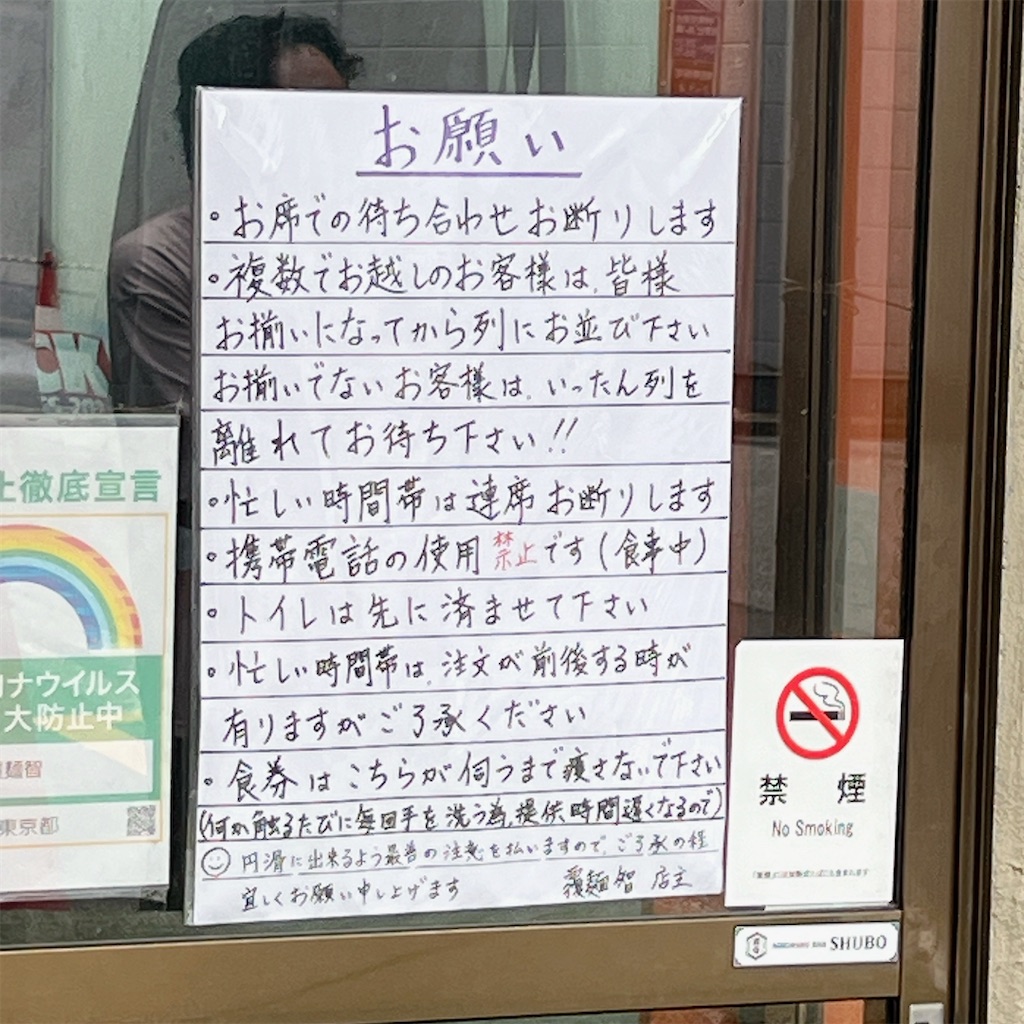 お願い
・お席での待ち合わせお断りします
・複数でお越しのお客様は、皆様
お揃いになってから列にお並び下さい
お揃いでないお客様は、いったん列を
離れてお待ち下さい!!
・忙しい時間帯は連席お断りします
・携帯電話の使用禁止です(食事中)
・トイレは先に済ませて下さい
・忙しい時間帯は、注文が前後する時が
有りますがご了承ください
・食券はこちらが伺うまで痩さないで下さい
(何か触るたびに毎回手を洗う為、提供、時間遅くなるので)
円滑に出来るよう最善の注意を払いますので、ご了承の程
宜しくお願い申し上げます
覆麺智 店主
止徹底宣言
ナウイルス
大防止中
麺智
東京都
禁煙
No Smoking
SHUBO